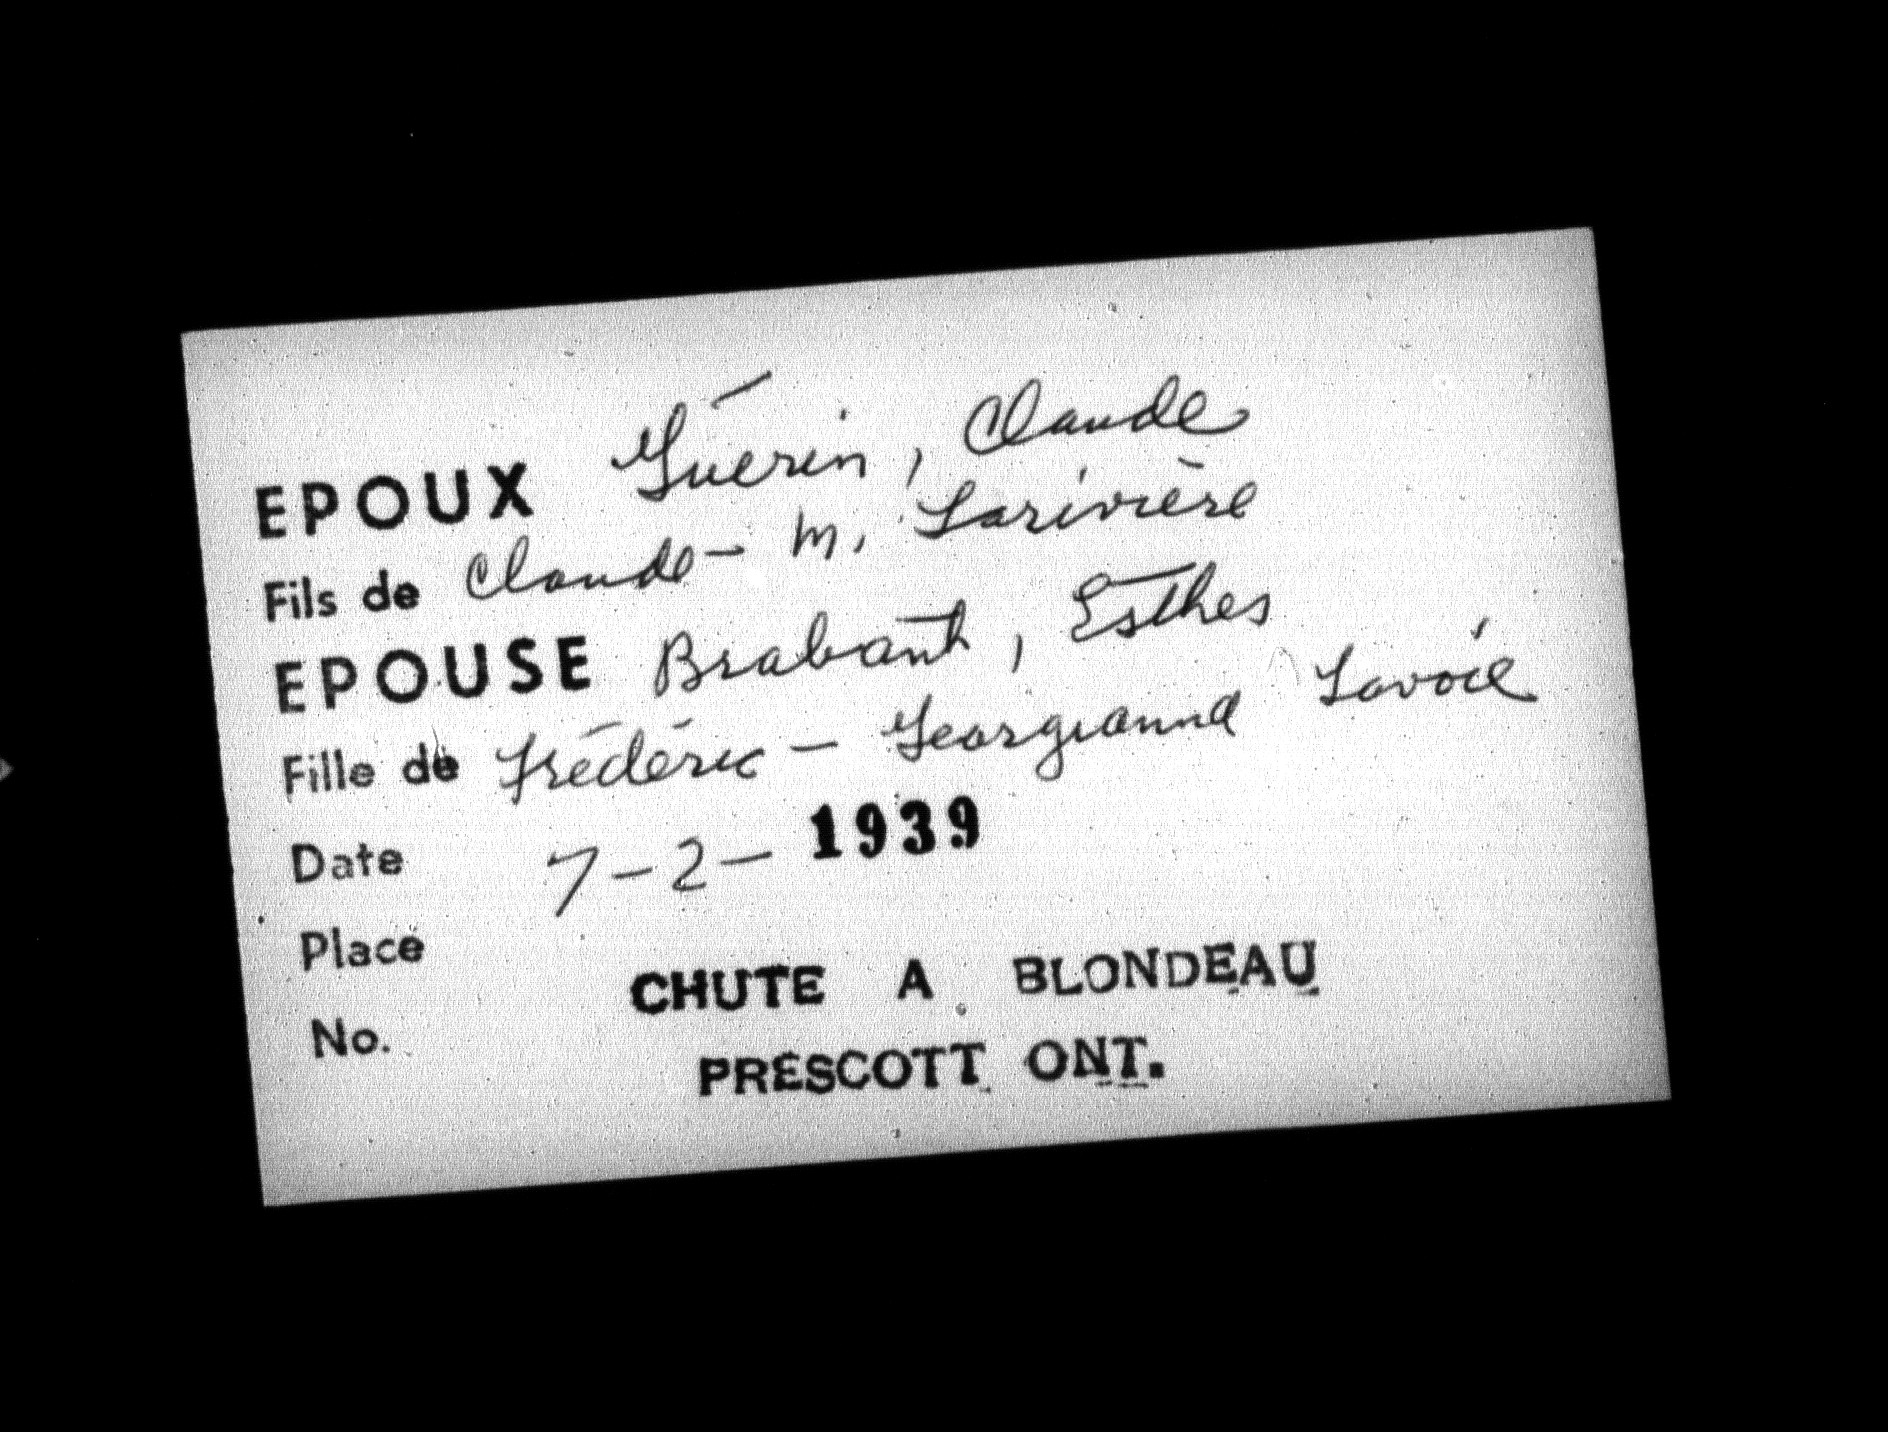 EPOUX Guérin, Claude
Fils de Claude - M. Larivière
EPOUSE Brabant, Esther
Fille de Frédéric - Georgianna Lavoie
Date 7-2-1939
Place CHUTE A BLONDEAU
No. PRESCOTT ONT.